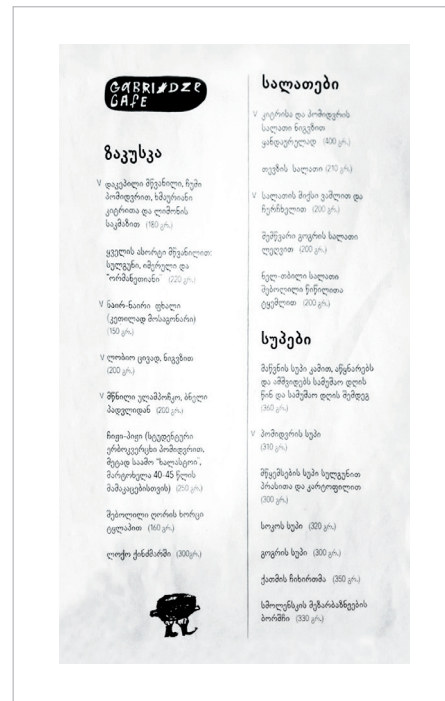 GABRIADZE
CAFE
ზაკუსკა
V დაკეპილი მწვანილი, ჩუმი
პომიდვრით, ხმაურიანი
კიტრითა და ლიმონის
საკმაზით (180 გრ.)
ყველის ასორტი მწვანილით:
სულგუნი, იმერული და
"ორმანეთიანი" (220 გრ.)
V ნაირ-ნაირი ფხალი
(კეთილად მოსაგონარი)
(150 გრ.)
V ლობიო ცივად, ნიგვზით
(200 გრ.)
V მწნილი ულამპოჩკო, ბნელი
პადვლიდან (200 გრ.)
ჩიჟი-პიჟი (სტუდენტური
ერბოკვერცხი პომიდვრით,
მეტად საამო "ხალასტოი",
მარტოხელა 40-45 წლის
მამაკაცებისთვის) (250 გრ.)
შებოლილი ღორის ხორცი
ტყლაპით (160 გრ.)
ლოქო ქინძმარში (300გრ.)
სალათები
V კიტრისა და პომიდვრის
სალათი ნიგვზით
ყანდაურულად (400 გრ.)
თევზის სალათი (210 გრ.)
V სალათის მიქსი ვაშლით და
ჩურჩხელით (200 გრ.)
შემწვარი გოგრის სალათი
ლეღვით (200 გრ.)
ნელ-თბილი სალათი
შებოლილი წიწილითა
ტყემლით (200 გრ.)
სუპები
მაწვნის სუპი კამით, აწყნარებს
და ამშვიდებს სამუშაო დღის
წინ და სამუშაო დღის შემდეგ
(360 გრ.)
V პომიდვრის სუპი
(310 გრ.)
მწყემსების სუპი სულგუნით
პრასითა და კარტოფილით
(300 გრ.)
სოკოს სუპი (320 გრ.)
გოგრის სუპი (300 გრ.)
ქათმის ჩიხირთმა (350 გრ.)
სმოლენსკის მეზარბაზნეების
ბორშჩი (330 გრ.)